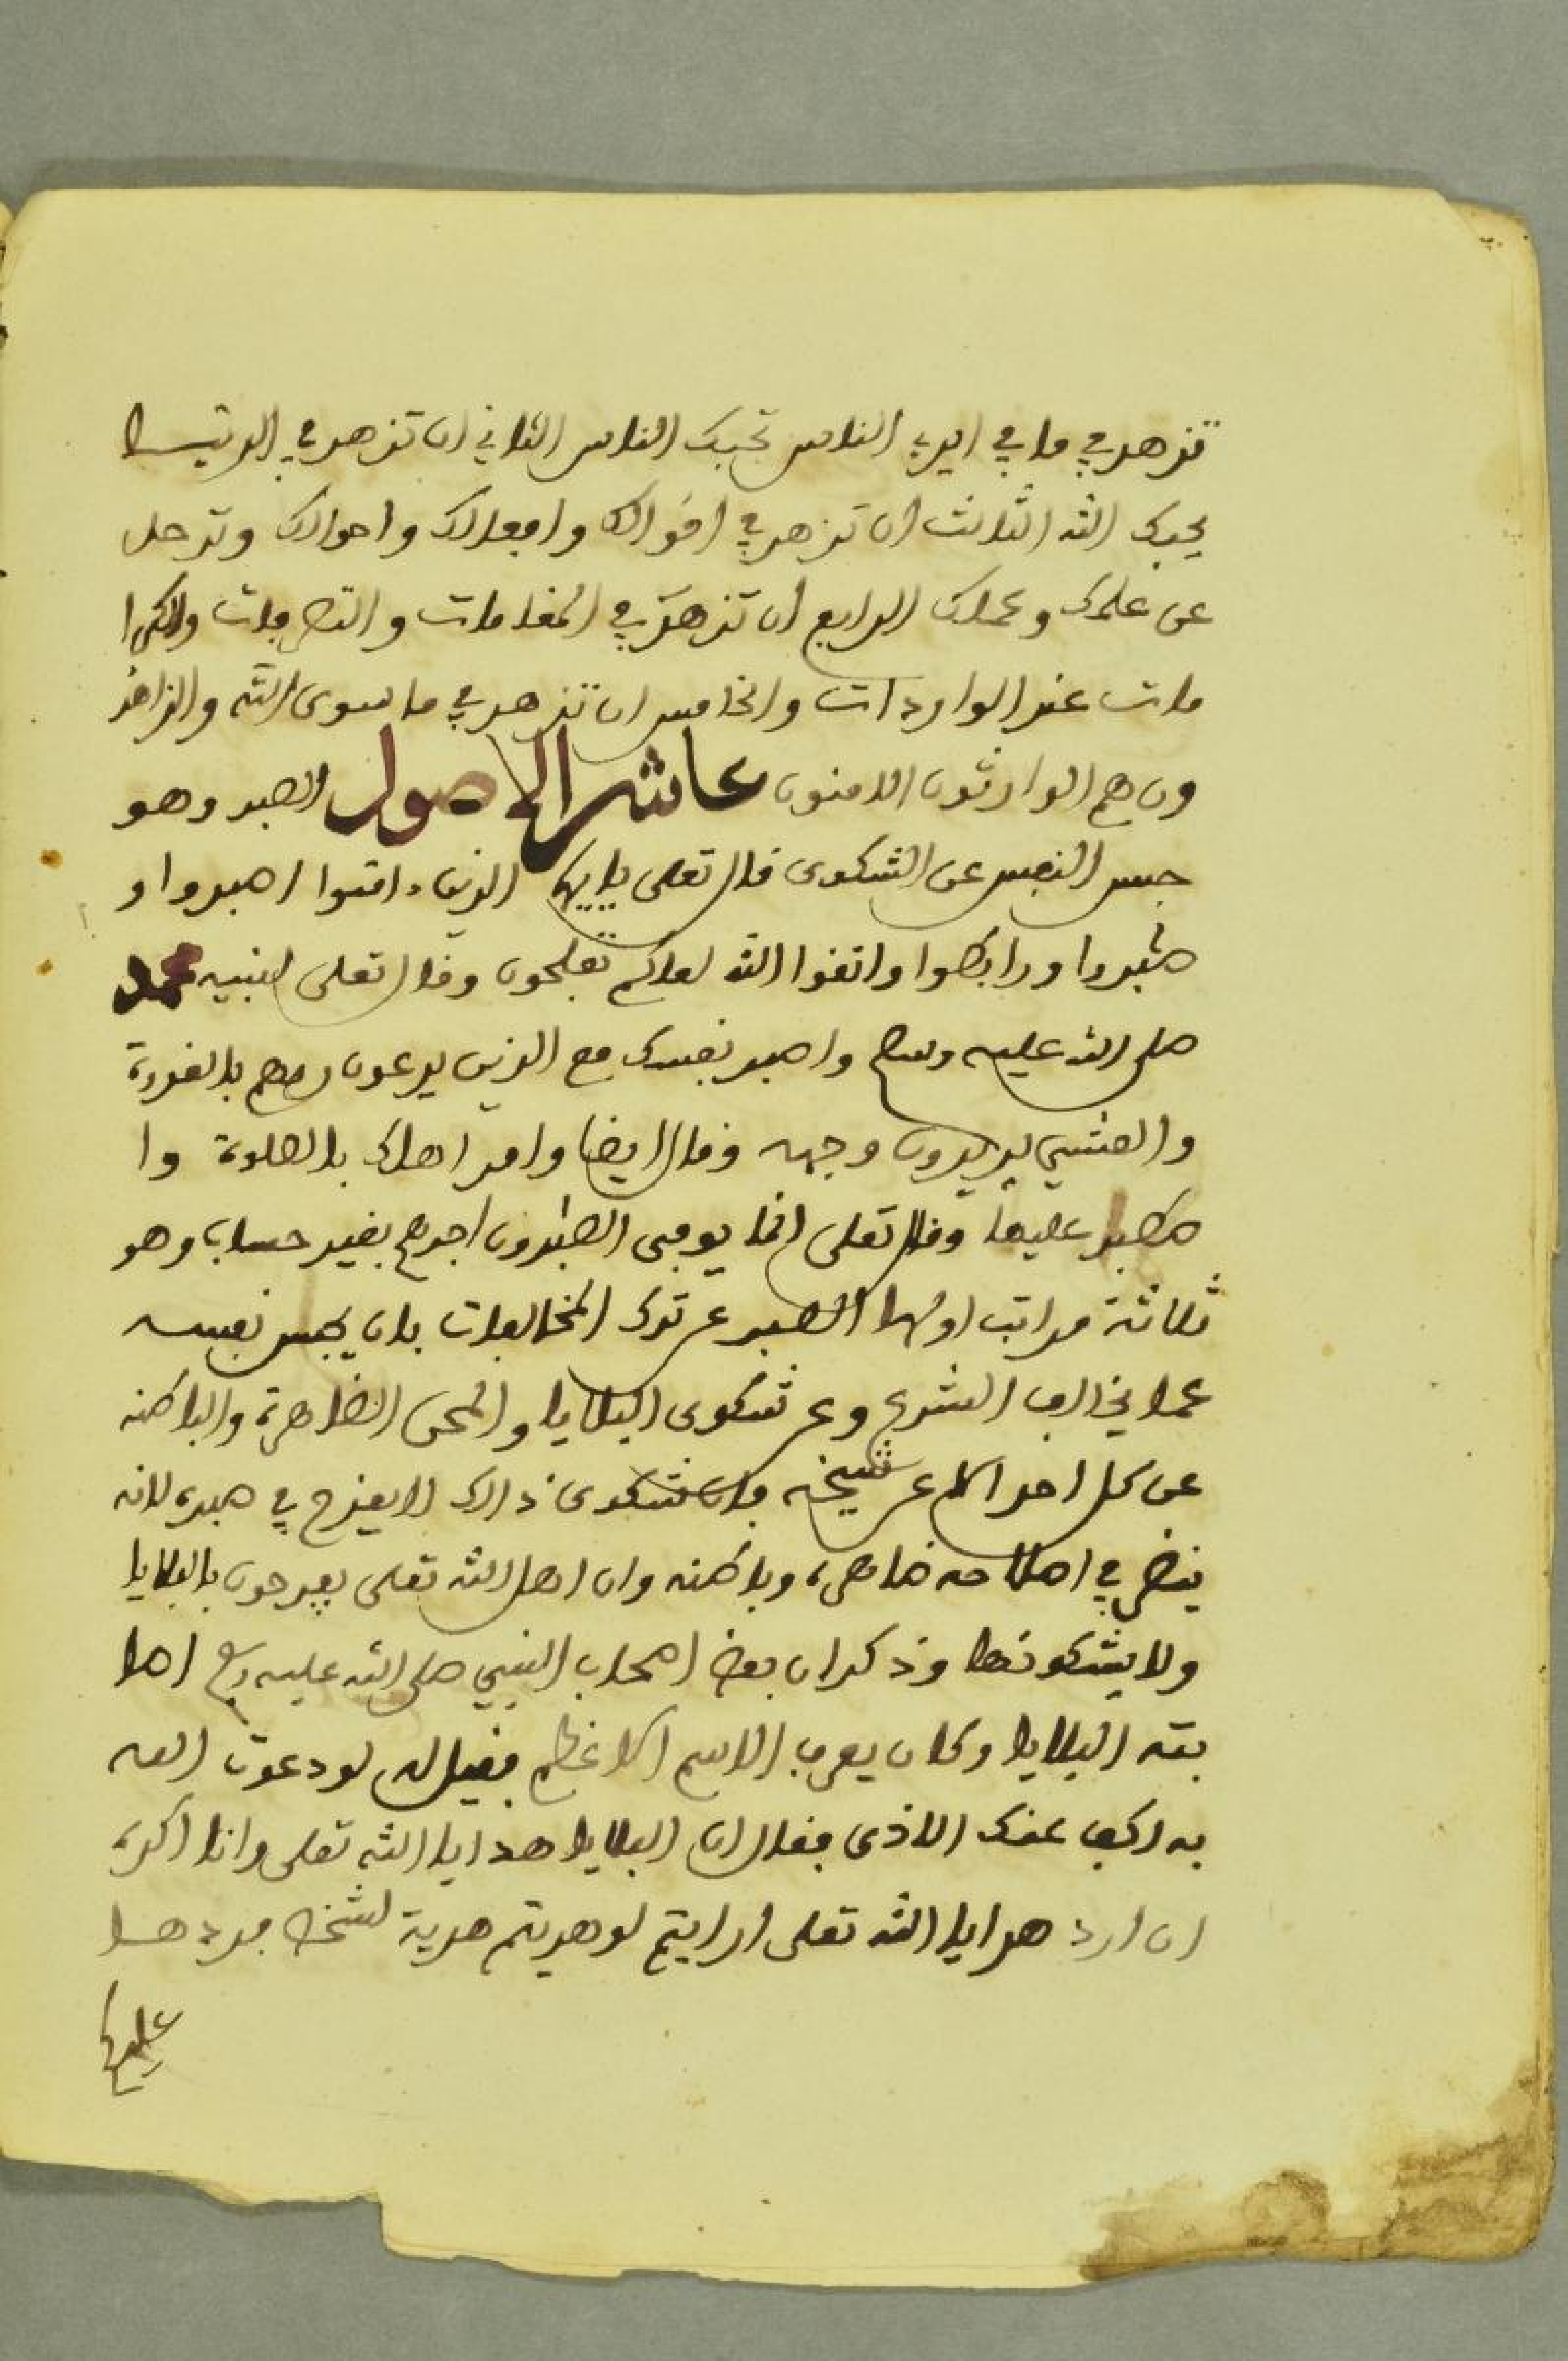 تزهد في ما في ايدي الناس تحبك الناس الثاني ان تزهد في الدنيا
يحبك الله الثالث ان تزهد في اقوالك وافعالك واحوالك وترحل
عن علمك وعملك الرابع ان تزهد في المقامات والتصرفات والكرا
مات عند الواردات والخامس ان تزهد في ما سوى الله والزاهد
ون هم الوارثون الامنون عاشر الاصول الصبر وهو
حبس النفس عن الشكوى قال تعلى يايها الذين ءامنوا اصبروا و
صبروا ورابطوا واتقوا الله لعلكم تفلحون وقال تعلى لنبيه محمد
صلى الله عليه وسلم واصبر نفسك مع الذين يدعون ربهم بالغدوة
والعشي يريدون وجهه وقال ايضا وامر اهلك بالصلوة وا
صطبر عليها وقال تعلى انما يوفى الصبرون اجرهم بغير حساب وهو
ثلاثة مراتب اولها الصبر عن ترك المخالفات بان يحبس نفسه
عما يخالف الشرع وعن شكوى البلايا والمحن الظاهرة والباطنه
عن كل احد الا عن شيخه فان شكوى ذالك لا يقدح في صبره لانه
ينظر في اصلاحه ظاهره وباطنه وان اهل الله تعلى يفرحون بالبلايا
ولا يشكونها وذكر ان بعض اصحاب النبي صلى الله عليه وسلم اصا
بته البلايا وكان يعرف الاسم الاعظم فقيل له لو دعوت الله
به لكف عنك الاذى فقال ان البلايا هدايا الله تعلى وانا اكره
ان ارد هدايا الله تعلى ارايتم لو هديتم هدية لشخص فردها
عليكم